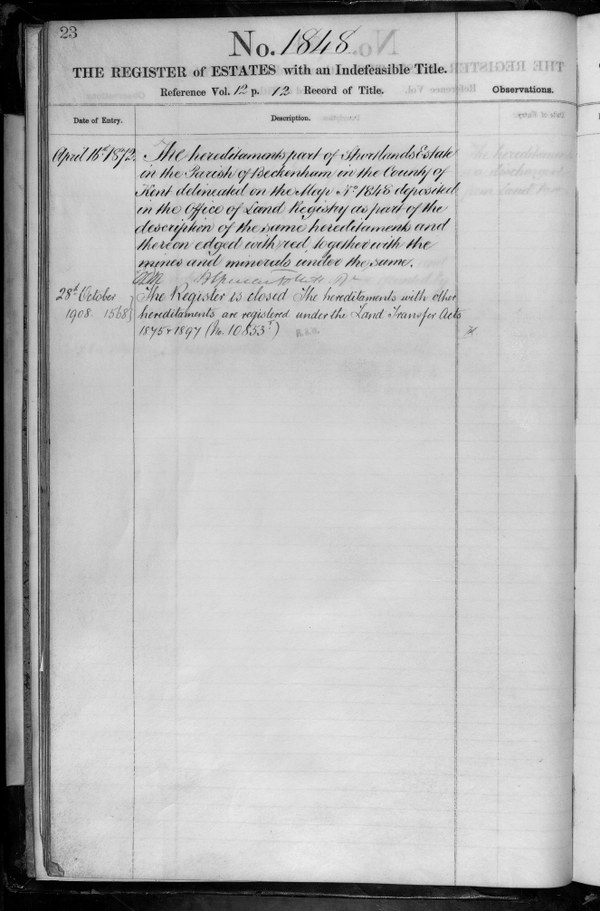 23
No. 1848
THE REGISTER of ESTATES with an Indefeasible Title.
Reference Vol. 12 p. 12 Record of Title.
Observations.
Date of Entry.
Description.
April 16th 1872.
The hereditaments part of Shortlands Estate
in the Parish of Beckenham in the County of
Kent delineated on the Map No 1848 deposited
in the Office of Land Registry as part of the
description of the same hereditaments and
thereon edged with red, together with the
mines and minerals under the same.
28th October
1908. 1568
The Register is closed The hereditaments with other
hereditaments are registered under the Land Transfer Acts
1875 & 1897 (No. 10853)